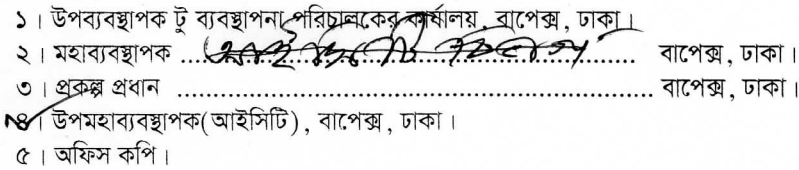 ১। উপব্যবস্থাপক টু ব্যবস্থাপনা পরিচালকের কার্যালয়, বাপেক্স, ঢাকা।
২। মহাব্যবস্থাপক .................................................. বাপেক্স, ঢাকা।
৩। প্রকল্প প্রধান .................................................. বাপেক্স, ঢাকা।
৪। উপমহাব্যবস্থাপক(আইসিটি), বাপেক্স, ঢাকা।
৫। অফিস কপি।